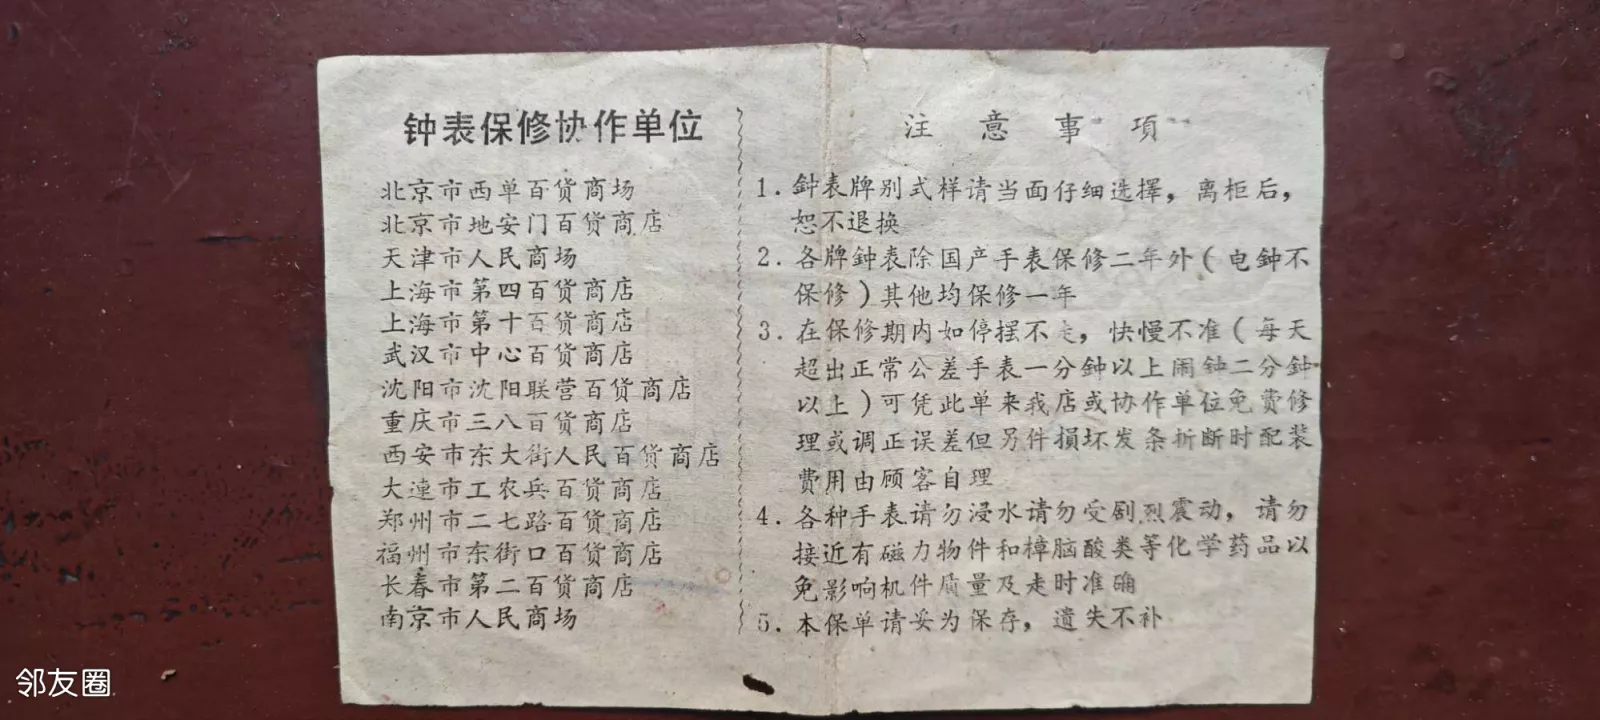 钟表保修协作单位
北京市西单百货商场
北京市地安门百货商店
天津市人民商场
上海市第四百货商店
上海市第十百货商店
武汉市中心百货商店
沈阳市沈阳联营百货商店
重庆市三八百货商店
西安市东大街人民百货商店
大連市工农兵百货商店
郑州市二七路百货商店
福州市东街口百货商店
长春市第二百货商店
南京市人民商场
注意事項
1. 鈡表牌别式样请当面仔细选擇，离柜后，
恕不退换
2. 各牌鈡表除国产手表保修二年外(电鈡不
保修)其他均保修一年
3. 在保修期内如停摆不走，快慢不准(每天
超出正常公差手表一分钟以上闹钟二分鈡
以上)可凭此单来我店或协作单位免费修
理或调正误差但另件損坏发条折断时配装
费用由顾客自理
4. 各种手表请勿浸水请勿受剧烈震动，请勿
接近有磁力物件和樟脑酸类等化学药品以
免影响机件质量及走时准确
5. 本保单请妥为保存，遗失不补
邻友圈